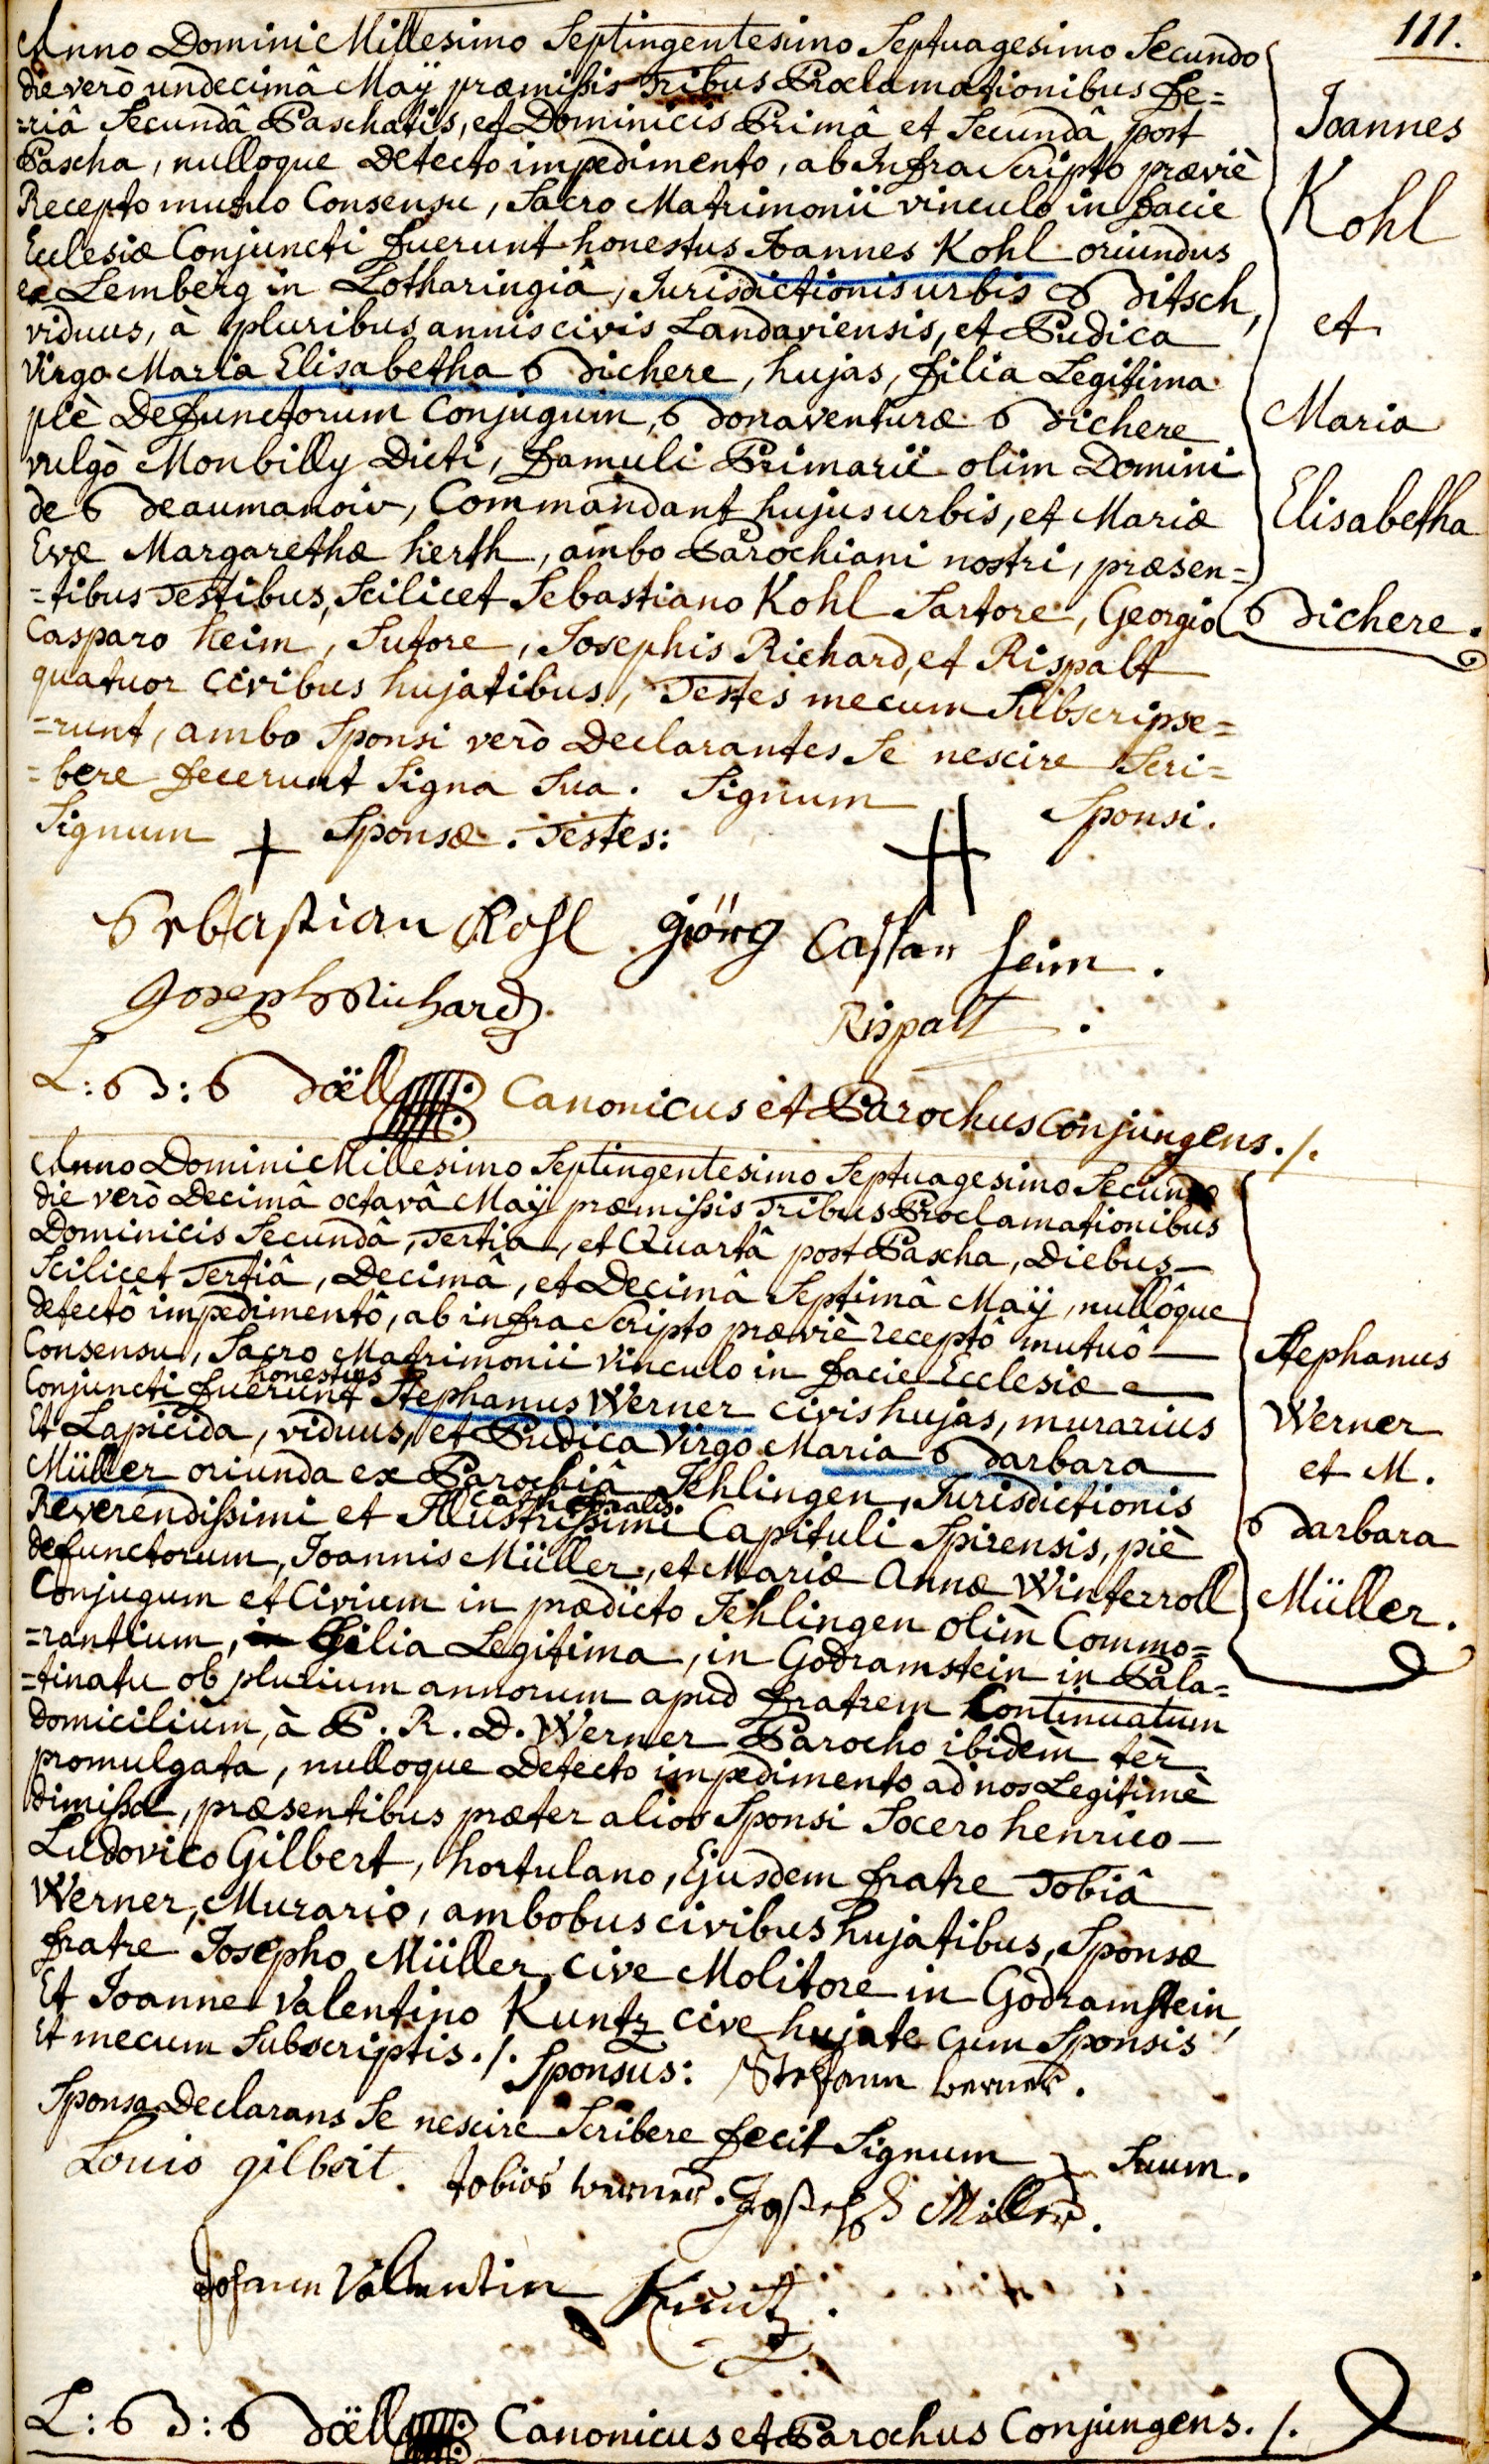 111.
Anno Domini Millesimo Septingentesimo Septuagesimo Secundo
die verò undecimâ Maÿ præmissis Tribus Proclamationibus Fe=
=riâ Secundâ Paschatis, et Dominicis Primâ et Secundâ post
Pascha, nulloque Detecto impedimento, ab Infra Scripto præviè
Recepto mutuo Consensu, Sacro Matrimonii vinculo in facie
Ecclesiæ Conjuncti fuerunt honestus Joannes Kohl oriundus
ex Lemberg in Lotharingiâ, Jurisdictionis urbis Bitsch,
viduus, à pluribus annis civis Landaviensis, et Pudica
virgo Maria Elisabetha Bichere, hujas, filia Legitima
piè Defunctorum Conjugum, Bonaventuræ Bichere
vulgò Monbilly Dicti, famuli Primarii olim Domini
de Beaumanoir, Commandant hujus urbis, et Mariæ
Evæ Margarethæ herth, ambo Parochiani nostri, præsen=
=tibus Testibus, Scilicet Sebastiano Kohl Sartore, Georgio
Casparo heim, Sutore, Josephis Richard, et Rispalt
quatuor civibus hujatibus, Testes mecum Subscripse=
=runt, ambo Sponsi verò Declarantes Se nescire Scri=
=bere fecerunt Signa Sua. Signum Sponsi.
Signum + Sponsæ. Testes:
Joannes
Kohl
et
Maria
Elisabetha
Bichere.
Sebastian Kohl Görg Casþar heim.
Joseph Richard.
Rispalt.
L: B: Böell Canonicus et Parochus Conjungens./.
Anno Domini Millesimo Septingentesimo Septuagesimo Secundo
die verò Decimâ octavâ Maÿ præmissis Tribus Proclamationibus
Dominicis Secundâ, Tertia, et Quartâ post Pascha, Diebus
Scilicet Tertiâ, Decimâ, et Decimâ Septimâ Maÿ, nullôque
detectô impedimentô, ab infra Scripto præviè receptô mutuô
Consensu, Sacro Matrimonii vinculo in facie Ecclesiæ
honestus
Conjuncti fuerunt Stephanus Werner civis hujas, murarius
Et Lapicida, viduus, et Pudica Virgo Maria Barbara
Müller oriunda ex Parochiâ Jehlingen, Jurisdictionis
Cathedralis.
Reverendissimi et Illustrissimi Capituli Spirensis, piè
defunctorum, Joannis Müller, et Mariæ Annæ Winterroll
Conjugum et Civium in prædicto Jehlingen olim Commo=
=rantium, filia Legitima, in Godramstein in Pala=
=tinatu ob plurium annorum apud fratrem Continuatum
domicilium, à P. R. D. Werner Parocho ibidem ter
promulgata, nulloque Detecto impedimento ad nos Legitimè
dimissa, præsentibus præter alios Sponsi Socero henrico
Ludovico Gilbert, hortulano, Ejusdem fratre Tobiâ
Werner, Murario, ambobus civibus hujatibus, Sponsæ
fratre Josepho Müller cive Molitore in Godramstein,
Et Joanne Valentino Kuntz cive hujate cum Sponsis
Et mecum Subscriptis./. Sponsus: Stefann Werner.
Sponsa Declarans Se nescire Scribere fecit Signum Suum.
Stephanus
Werner
et M.
Barbara
Müller.
Louis gilbert. tobias werner. Joseph Miller.
Johann Valentin Kuntz.
L: B: Böell Canonicus et Parochus Conjungens./.